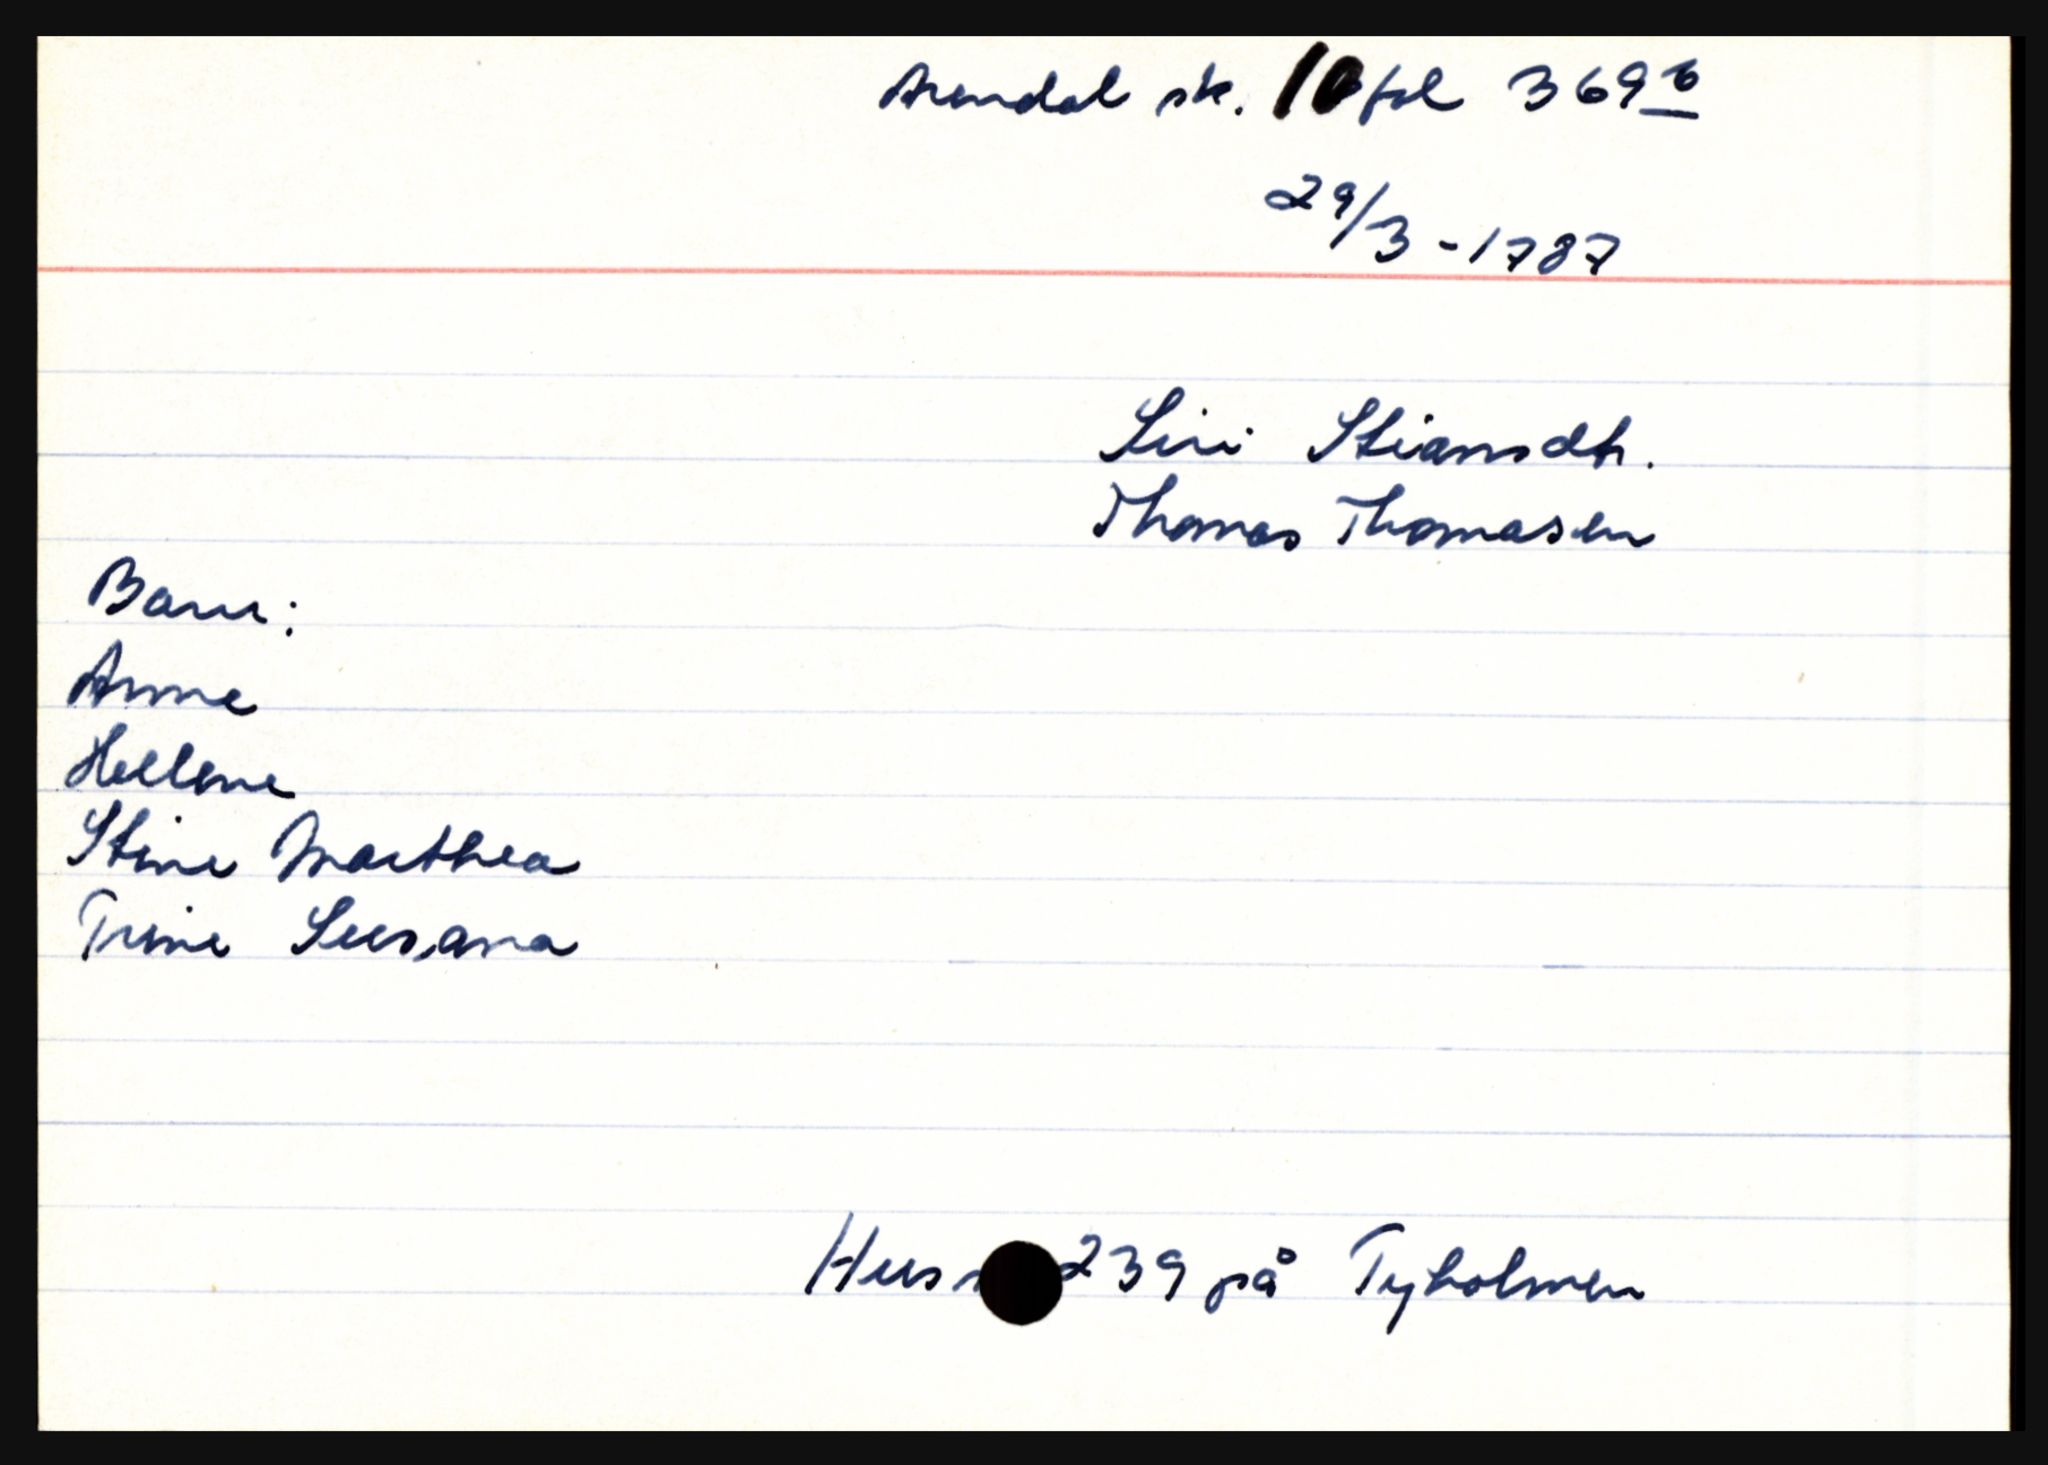 Arendal sk. 10 fol 369 b
29/3 - 1787
Siri Stiansdtr.
Thomas Thomasen
Barn:
Anne
Hellene
Stine Marthea
Trine Susana
Hus n 239 på Tyholmen